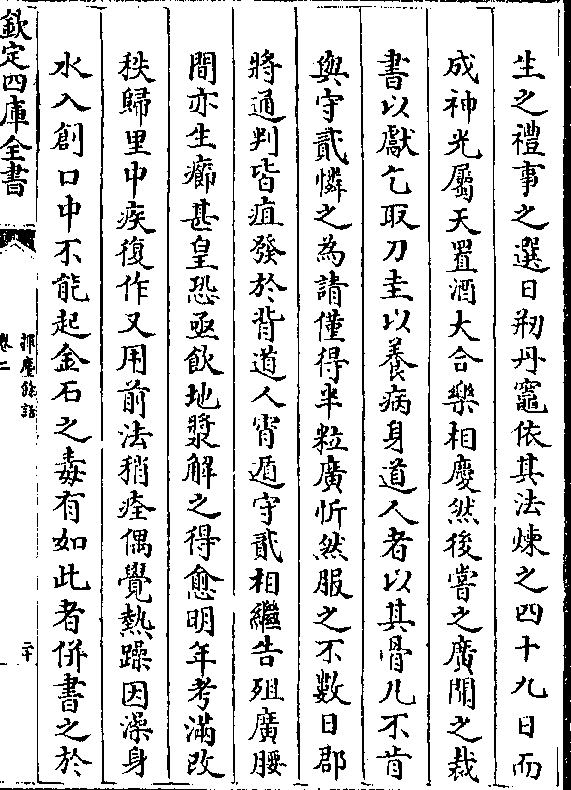 生之禮事之選日剏丹竈依其法煉之四十九日而
成神光屬天置酒大合樂相慶然後嘗之廣聞之裁
書以獻乞取刀圭以養病身道人者以其骨凡不肯
與守貳憐之為請僅得半粒廣忻然服之不數日郡
將通判皆疽發於背道人宵遁守貳相繼告殂廣腰
間亦生癤甚皇恐亟飲地漿解之得愈明年考滿改
秩歸里中疾復作又用前法稍痊偶覺熱躁因澡身
水入創口中不能起金石之毒有如此者併書之於
欽定四庫全書
揮麈餘話
卷二
二十